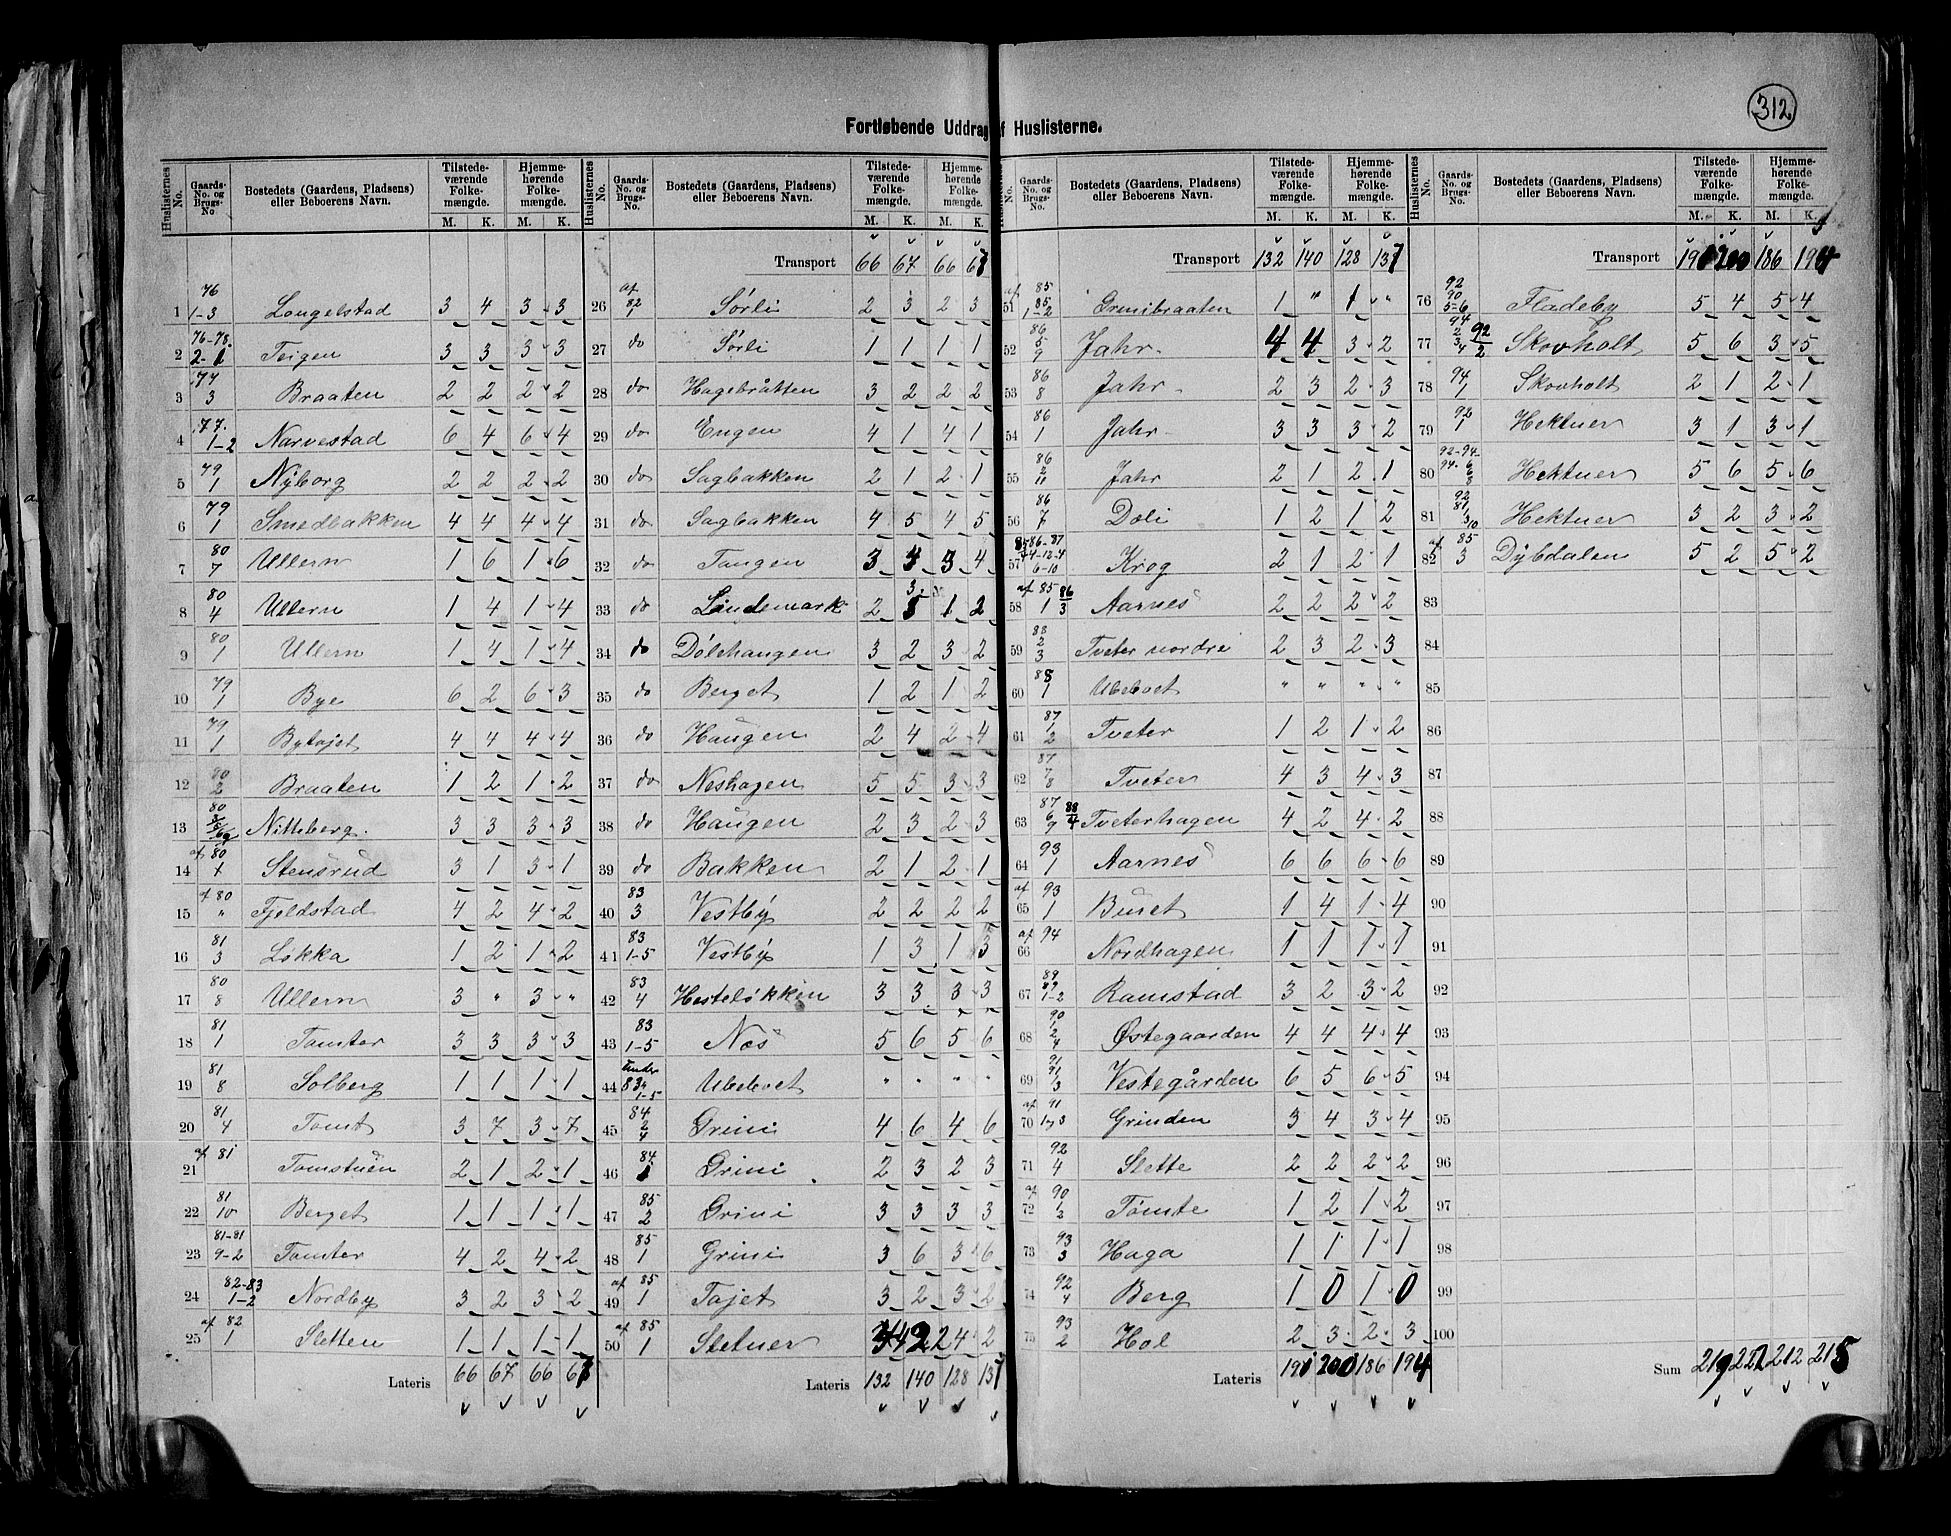 312
Fortløbende Uddrag af Huslisterne.
Huslisternes No. Gaards-No. og Brugs-No Bostedets (Gaardens, Pladsens) eller Beboerens Navn. Tilstedeværende Folkemængde. M. K. Hjemmehørende Folkemængde. M. K.
1 76 1-3 Langelstad 3 4 3 3
2 76-78 2-1 Teigen 3 3 3 3
3 77 3 Braaten 2 2 2 2
4 77. 1-2 Narvestad 6 4 6 4
5 79 1 Nyborg 2 2 2 2
6 79 1 Smedbakken 4 4 4 4
7 80 7 Ullern 1 6 1 6
8 80 4 Ullern 1 4 1 4
9 80 1 Ullern 1 4 1 4
10 79 1 Bye 6 2 6 3
11 79 1 Bytajet 4 4 4 4
12 80 2 Braaten 1 2 1 2
13 80 Nittberg. 3 3 3 3
14 af 80 Stensrud 3 1 3 1
15 af 80 " Fjeldstad 4 2 4 2
16 81 3 Løkka 1 2 1 2
17 80 8 Ullern 3 " 3 "
18 81 1 Tomter 3 3 3 3
19 81 8 Solberg 1 1 1 1
20 81 4 Tomt 3 7 3 7
21 af 81 Tomstuen 2 1 2 1
22 81 10 Berget 1 1 1 1
23 81-81 9-2 Tomter 4 2 4 2
24 82-83 1-2 Nordby 3 2 3 2
25 af 82 1 Sletten 1 1 1 1
Lateris 66 67 66 67
Huslisternes No. Gaards-No. og Brugs-No. Bostedets (Gaardens, Pladsens) eller Beboerens Navn. Tilstedeværende Folkemængde. M. K. Hjemmehørende Folkemængde. M. K.
Transport 66 67 66 67
26 af 82 1 Sørli 2 3 2 3
27 do Sørli 1 1 1 1
28 do Hagebråtten 3 2 2 2
29 do Engen 4 1 4 1
30 do Sagbakken 2 1 2 1
31 do Sagbakken 4 5 4 5
32 do Tangen 3 4 3 4
33 do Lindemark 2 3 1 2
34 do Dølehaugen 3 2 3 2
35 do Berget 1 2 1 2
36 do Haugen 2 4 2 4
37 do Neshagen 5 5 3 3
38 do Haugen 2 3 2 3
39 do Bakken 2 1 2 1
40 83 3 Vestby 2 2 2 2
41 83 1-5 Vestby 1 3 1 3
42 83 4 Hesteløkken 3 3 3 3
43 83 1-5 Næs 5 6 5 6
44 Under 83 1-5 Ubeboet " " " "
45 84 2 4 Grini 4 6 4 6
46 84 1 Grini 2 3 2 3
47 85 2 Grini 3 3 3 3
48 85 1 Grini 3 6 3 6
49 af 85 1 Tajet 3 2 3 2
50 af 85 1 Sletner 4 2 4 2
Lateris 132 140 128 137
No. Gaards-No. og Brugs-No. Bostedets (Gaardens, Pladsens) eller Beboerens Navn. Tilstedeværende Folkemængde. M. K. Hjemmehørende Folkemængde. M. K.
Transport 132 140 128 137
51 af 85 85 1-2 Grinibraaten 1 " 1 "
52 86 5 9 Jahr. 4 4 3 2
53 86 8 Jahr 2 3 2 3
54 86 1 Jahr 3 3 3 2
55 86 2 11 Jahr 2 1 2 1
56 86 7 Dæli 1 2 1 2
57 85 86-87 4-12-4 6-10 Krog 2 1 2 1
58 af 85 1 86 3 Aarnes 2 2 2 2
59 88 2 3 Tveter nordre 2 3 2 3
60 88 1 Ubeboet " " " "
61 87 1 2 Tveter 1 2 1 2
62 87 7 8 Tveter 4 3 4 3
63 87 6 9 88 4 Tveterhagen 4 2 4 2
64 93 1 Aarnes 6 6 6 6
65 af 93 1 Buret 1 4 1 4
66 af 94 Nordhagen 1 1 1 1
67 89 89 1-2 Ramstad 3 2 3 2
68 90 1 2 4 Østegaarden 4 4 4 4
69 91 91 1 3 Vestegården 6 5 6 5
70 af 91 1 3 Grinden 3 4 3 4
71 92 4 Slette 2 2 2 2
72 af 90 1 2 Tømte 1 2 1 2
73 93 3 Haga 1 1 1 1
74 92 4 Berg 1 0 1 0
75 93 2 Hol 2 3 2 3
Lateris 191 200 186 194
Huslisternes No. Gaards-No. og Brugs-No. Bostedets (Gaardens, Pladsens) eller Beboerens Navn. Tilstedeværende Folkemængde. M. K. Hjemmehørende Folkemængde. M. K.
Transport 191 200 186 194
76 92 90 5-6 Fladeby 5 4 5 4
77 94 2 3 4 92 2 Skovholt 5 6 3 5
78 94 1 Skovholt 2 1 2 1
79 92 1 Hektner 3 1 3 1
80 92-94 94-6 Hektner 5 6 5 6
81 92 81 3 10 Hektner 3 2 3 2
82 af 85 3 Dybdalen 5 2 5 2
83
84
85
86
87
88
89
90
91
92
93
94
95
96
97
98
99
100
Sum 219 222 212 215